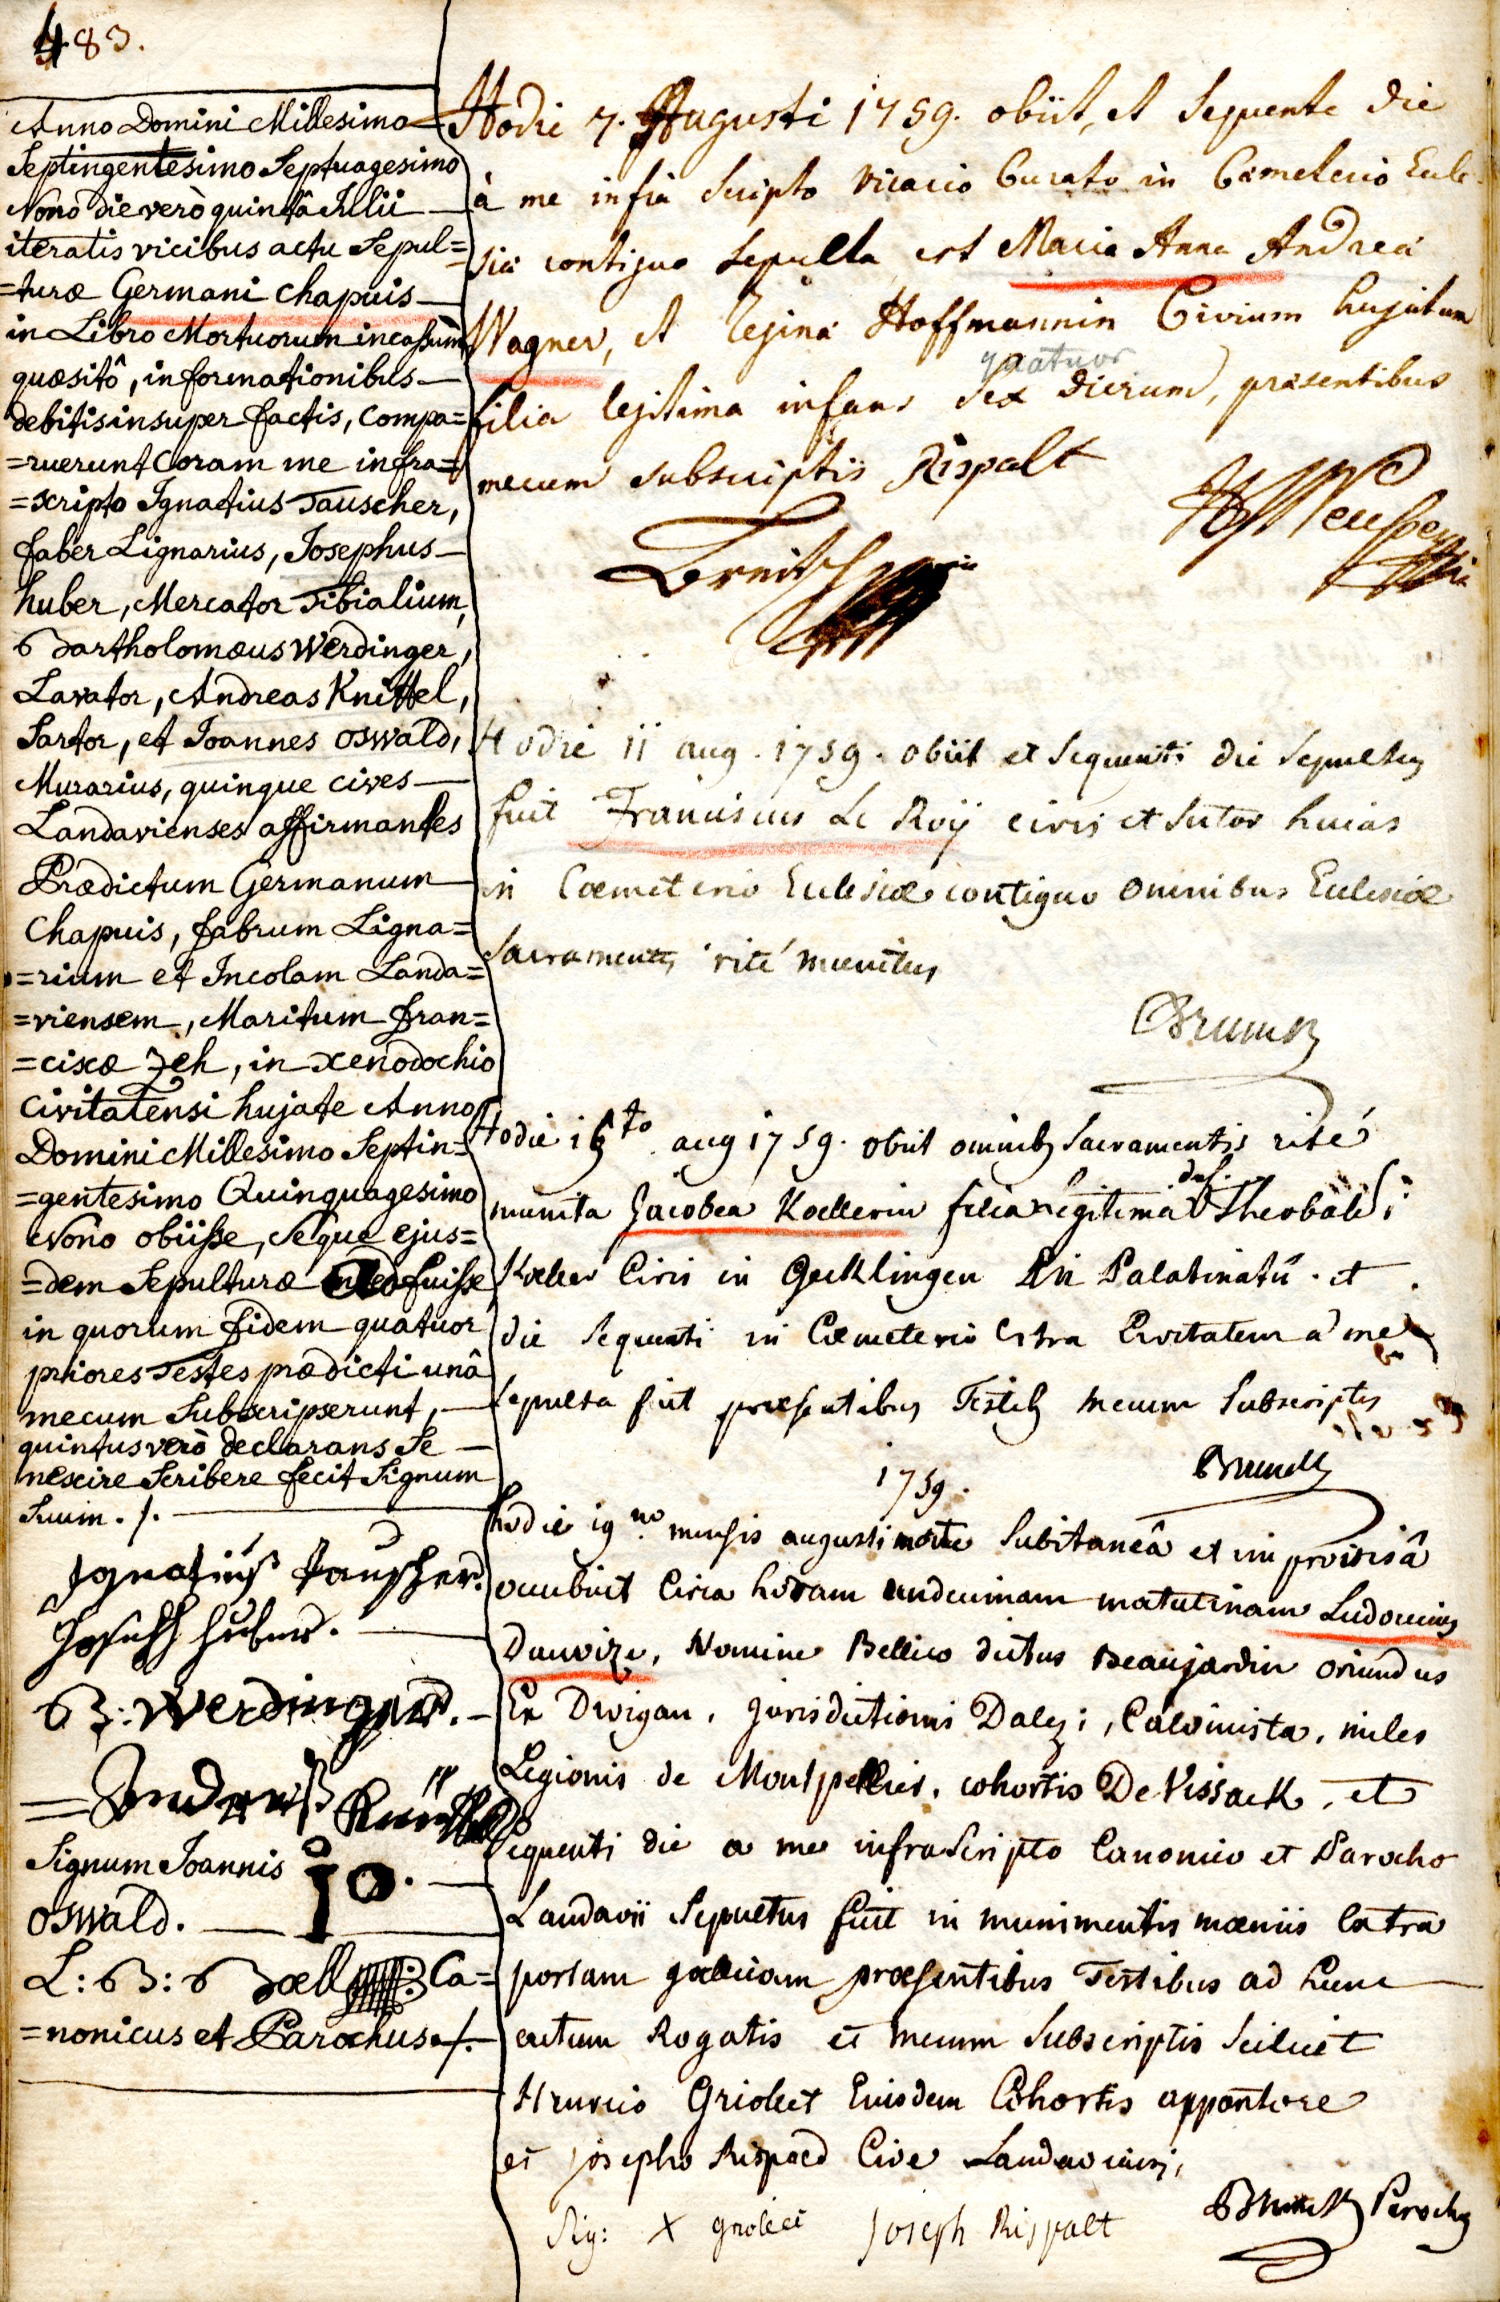 483.
Anno Domini Millesimo
Septingentesimo Septuagesimo
Nono die verò quintâ Julii
iteratis vicibus actu Sepul=
=turæ Germani Chapuis
in Libro Mortuorum incassùm
quæsitô, informationibus
debitis insuper factis, compa=
=ruerunt Coram me infra=
=scripto Ignatius Tauscher,
faber Lignarius, Josephus
huber, Mercator Tibialium,
Bartholomæus Werdinger,
Lavator, Andreas Knittel,
Sartor, et Joannes Oswald,
Murarius, quinque cives
Landavienses affirmantes
Prædictum Germanum
Chapuis, fabrum Ligna=
=rium et Incolam Landa=
=viensem, Maritum Fran=
=ciscæ Zeh, in xenodochio
Civitatensi hujate Anno
Domini Millesimo Septin=
=gentesimo Quinquagesimo
Nono obiisse, Seque ejus=
=dem Sepulturæ fuisse
in quorum fidem quatuor
priores Testes prædicti unâ
mecum Subscripserunt,
quintus verò declarans Se
nescire Scribere fecit Signum
Suum ./.
Ignatius Tauscher.
Joseph Huber.
B: Werdinger.
Andreas Knittel
Signum Joannis IO.
Oswald.
L: B: Bæll Ca=
=nonicus et Parochus ./.
Hodie 7. Augusti 1759. obiit, et Sequente die
à me infra Scripto Vicario Curato in Cæmeterio Eccle-
siæ contiguo Sepulta est Maria Anna Andreæ
Wagner, et Regina Hoffmannin Civium hujatum
quatuor
filia legitima infans Sex dierum, præsentibus
mecum subscriptis Rispalt
Hodie 11 aug. 1759. obiit et Sequenti die Sepultus
fuit Franciscus Le Roÿ civis et Sutor huias
in Cœmeterio Ecclesiæ contiguo omnibus Ecclesiæ
Sacramentis rité munitus
Brunck
Hodie 16to aug 1759. obiit omnibus Sacramentis rité
munita Jacobea Koellerin filia legitima def. Theobaldi
Koeller Civis in Gecklingen in Palatinatû. et
die Sequenti in Cœmeterio Extra Civitatem a me
Sepulta fuit præsentibus Testibus mecum Subscriptis
Brunck
1759.
hodie 19no mensis augusti morte Subitaneâ et improvisâ
occubuit Circa horam undecimam matutinam Ludovicus
Dauvize, Nomine Bellico dictus Beaujardin oriundus
Ex Dvigan, Jurisdictionis Dalez, Calvinista, miles
Legionis de Montpellier, cohortis De Vissack, et
Sequenti die a me infraScripto Canonico et Parocho
Landavii Sepultus fuit in munimentis mœniis Extra
portam gallicam præsentibus Testibus ad hunc
actum Rogatis et mecum Subscriptis Scilicet
Griolet Eiusdem Cohortis
et josepho Rispald Cive Landaviensi,
Sig: X griolet Joseph Rispalt Brunck Parochus